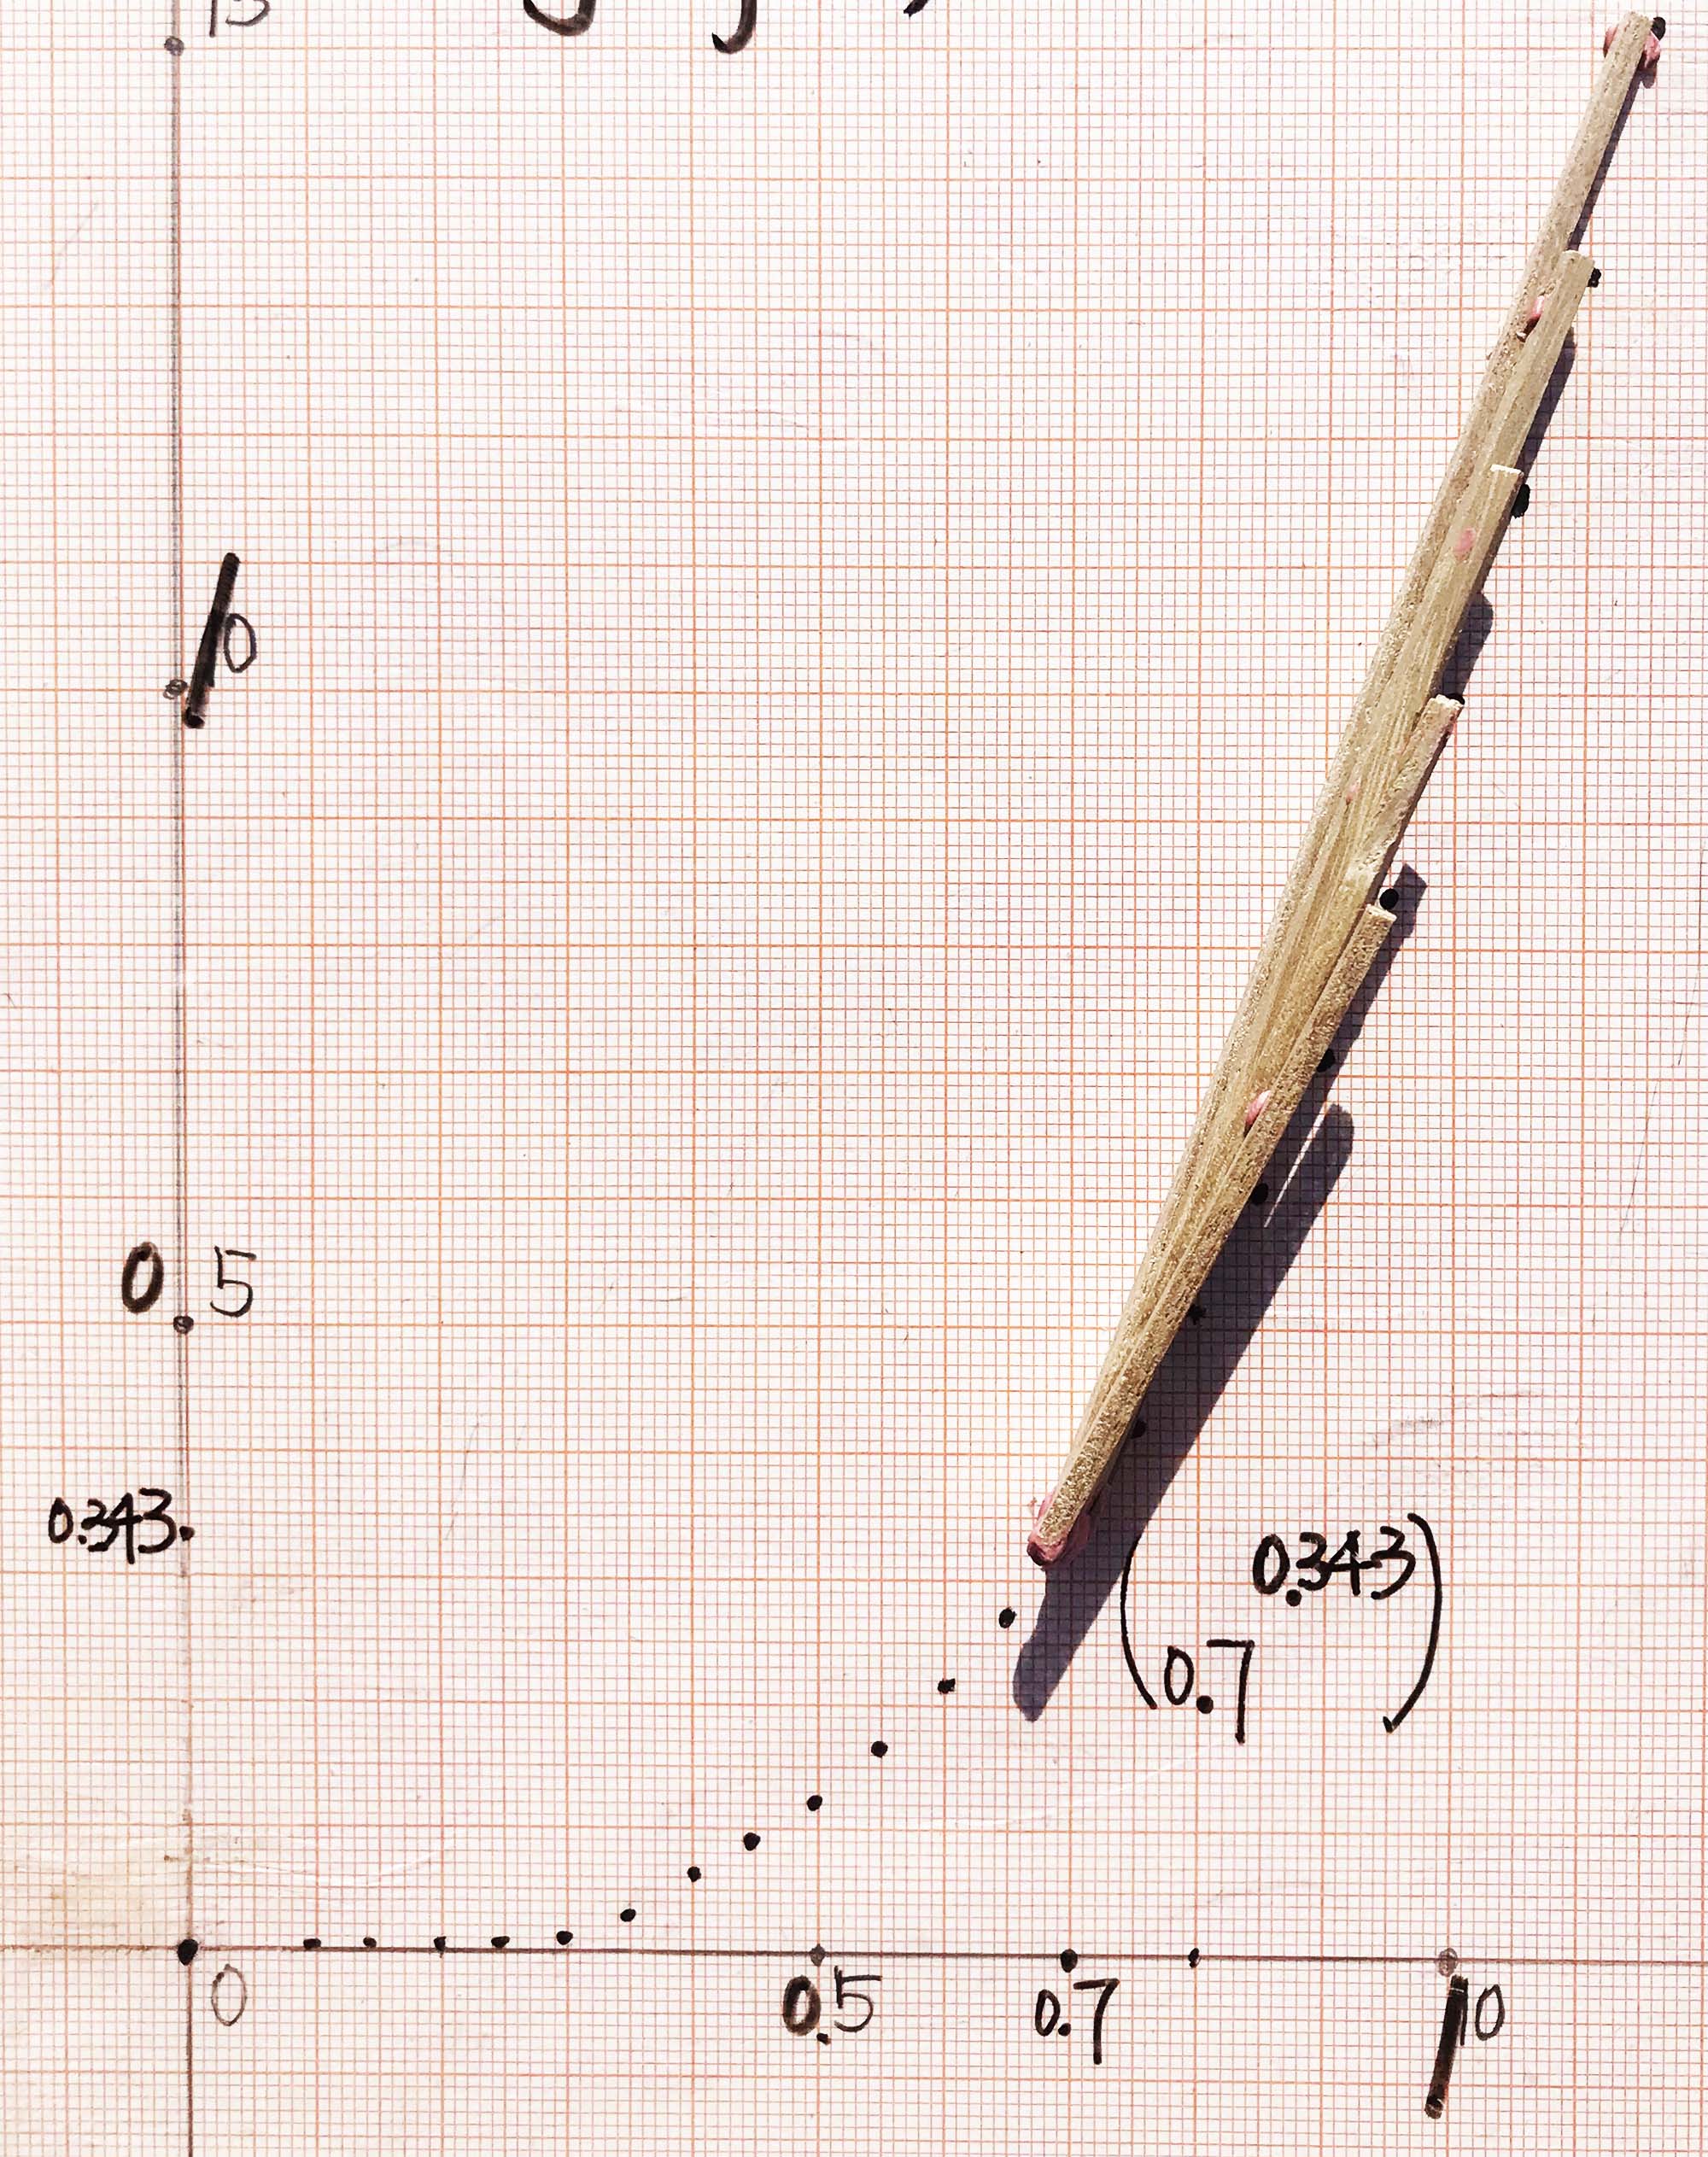 10
0.5
0.343
(0.7 0.343)
0 0.5 0.7 10